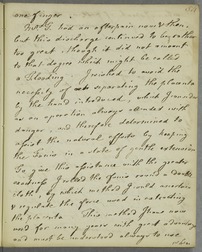 one finger.
Mrs. G. had an afterpain now & then,
but this discharge continued to be rather
too great, though it did not amount
to that degree which might be called
a Flooding. I wished to avoid the
necessity of separating the placenta
by the hand introduced, which I consider
as an operation always attended with
danger, and therefore determined to
assist the natural efforts by keeping
the in a state of gentle extension
To give this assistance with the greater
readiness I the funis round a double
cloth, by which method I could ascertain
& regulate the force used in extracting
the placenta. This method I have now
used for many years with great advantage
and must be understood always to use
when